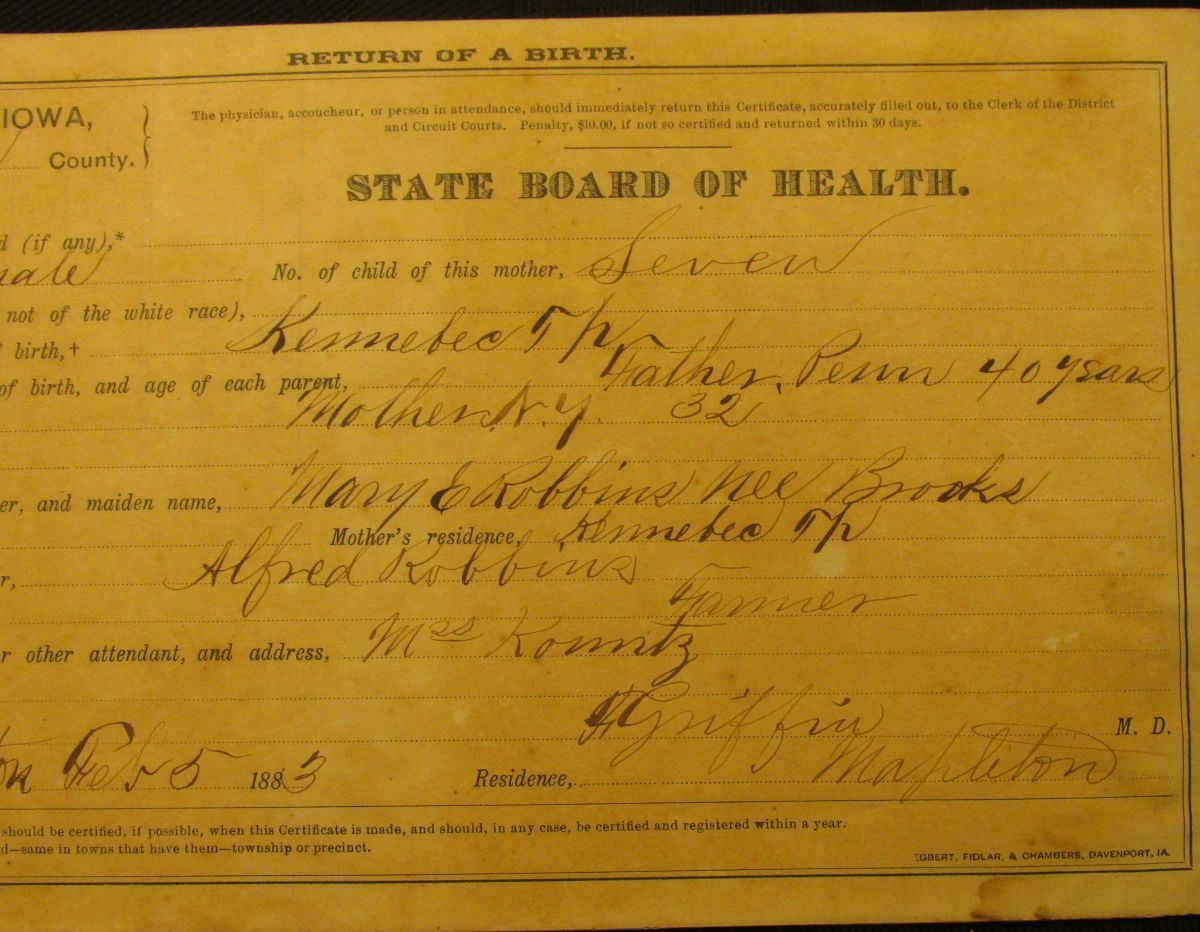 RETURN OF A BIRTH.
IOWA,
County.
The physician, accoucheur, or person in attendance, should immediately return this Certificate, accurately filled out, to the Clerk of the District
and Circuit Courts. Penalty, $10.00, if not so certified and returned within 30 days.
STATE BOARD OF HEALTH.
d (if any),*
male No. of child of this mother, Seven
not of the white race),
birth,† Kennebec Tp
of birth, and age of each parent, Father Penn 40 years
Mother N.Y. 32
er, and maiden name, Mary E Robbins Nee Brooks
Mother's residence, Kennebec Tp
r, Alfred Robbins
Farmer
r other attendant, and address, Mrs Kountz
Griffin M. D.
Feb 5 1883 Residence, Mapleton
should be certified, if possible, when this Certificate is made, and should, in any case, be certified and registered within a year.
d—same in towns that have them—township or precinct.
EGBERT, FIDLAR, & CHAMBERS, DAVENPORT, IA.